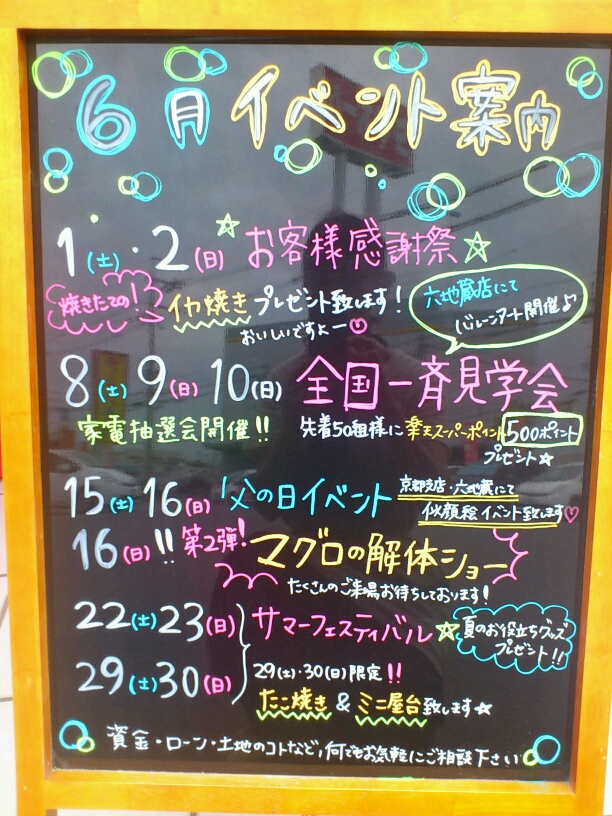 6月イベント案内
1(土)・2(日) お客様感謝祭
焼きたての! イカ焼きプレゼント致します!
おいしいですよー
六地蔵店にて
バルーンアート開催♪
8(土) 9(日) 10(日) 全国一斉見学会
家電抽選会開催!! 先着50組様に楽天スーパーポイント500ポイント
プレゼント☆
15(土) 16(日) 父の日イベント 京都支店・六地蔵にて
似顔絵イベント致します♡
16(日)!! 第2弾! マグロの解体ショー
たくさんのご来場お待ちしております!
22(土) 23(日) サマーフェスティバル☆ 夏のお役立ちグッズ
プレゼント!!
29(土) 30(日) 29(土)・30(日)限定!!
たこ焼き & ミニ屋台致します☆
資金・ローン・土地のコトなど、何でもお気軽にご相談下さい